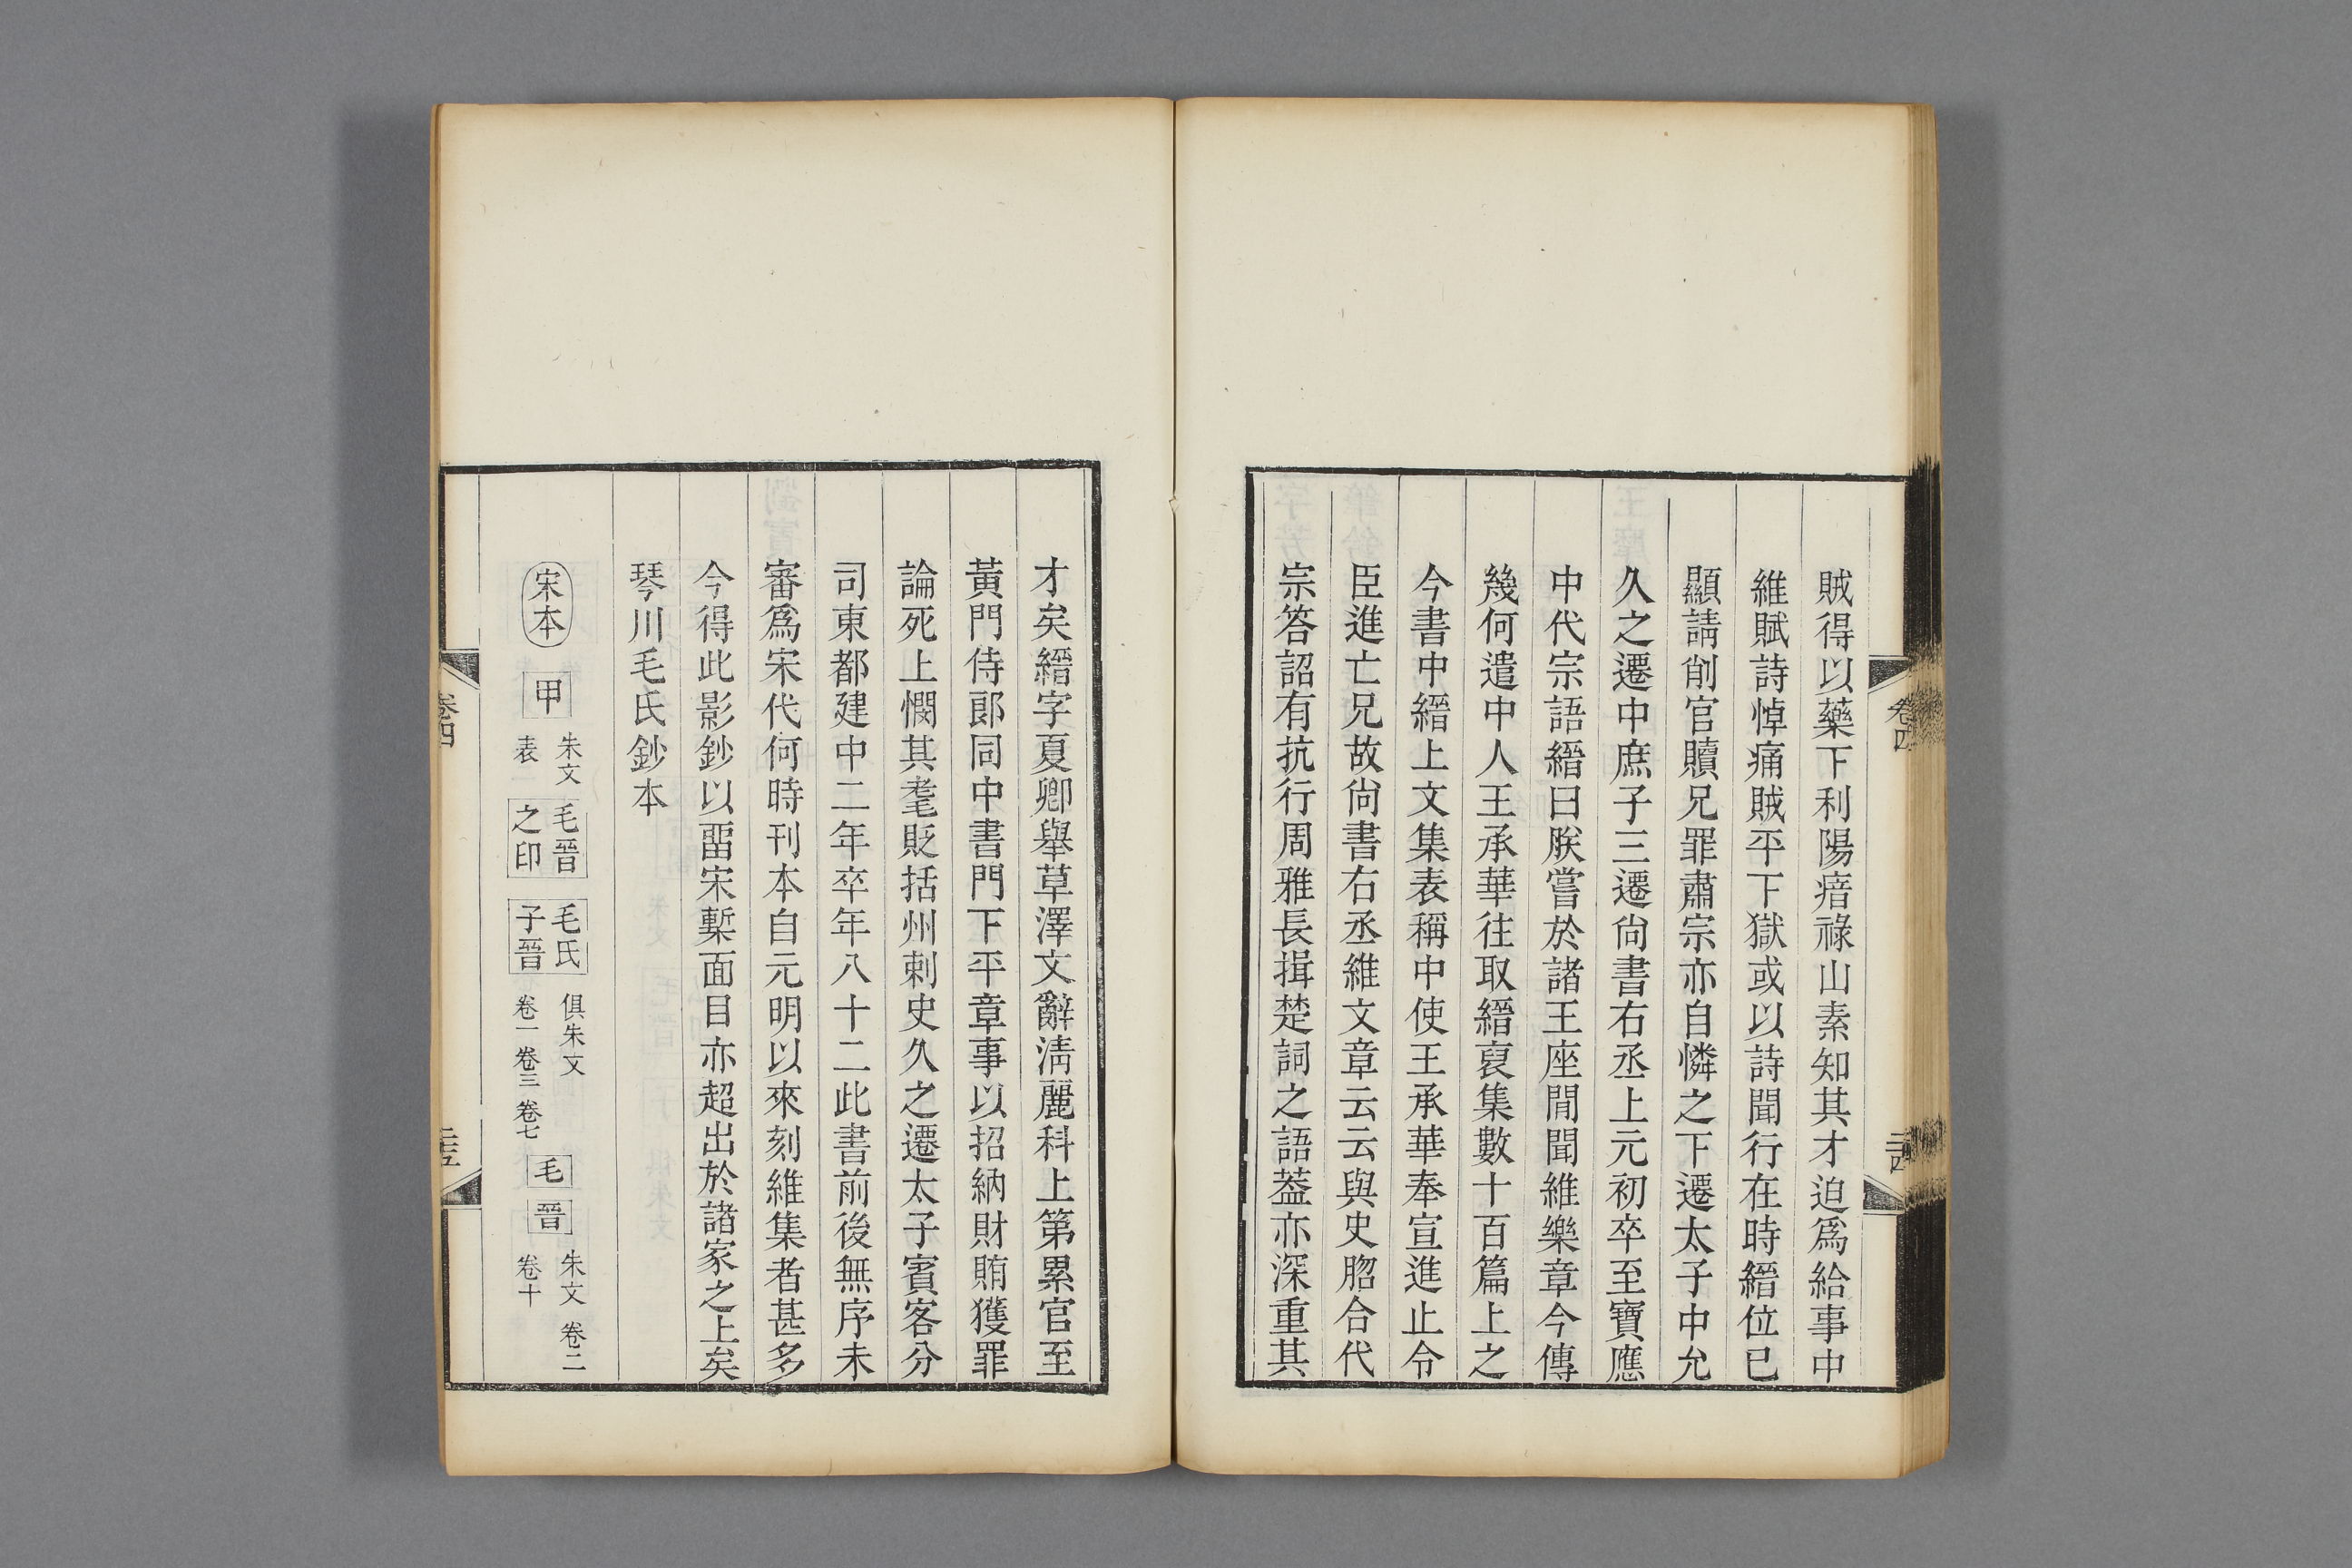 賊得以藥下利陽瘖祿山素知其才迫爲給事中
維賦詩悼痛賊平下獄或以詩聞行在時縉位已
顯請削官贖兄罪肅宗亦自憐之下遷太子中允
久之遷中庶子三遷尙書右丞上元初卒至寶應
中代宗語縉曰朕嘗於諸王座聞聞維樂章今傳
幾何遣中人王承華往取縉裒集數十百篇上之
今書中縉上文集表稱中使王承華奉宣進止令
臣進亡兄故尙書右丞維文章云云與史脗合代
宗答詔有抗行周雅長揖楚詞之語葢亦深重其
卷四
才矣縉字夏卿舉草澤文辭淸麗科上第累官至
黃門侍郎同中書門下平章事以招納財賄獲罪
論死上憫其耄貶括州刺史久之遷太子賓客分
司東都建中二年卒年八十二此書前後無序未
審爲宋代何時刊本自元明以來刻維集者甚多
今得此影鈔以畱宋槧面目亦超出於諸家之上矣
琴川毛氏鈔本
宋本 甲 朱文 表 毛晉之印 毛氏子晉 俱朱文 卷一 卷三 卷七 毛 晉 朱文 卷二 卷十
卷四 二五